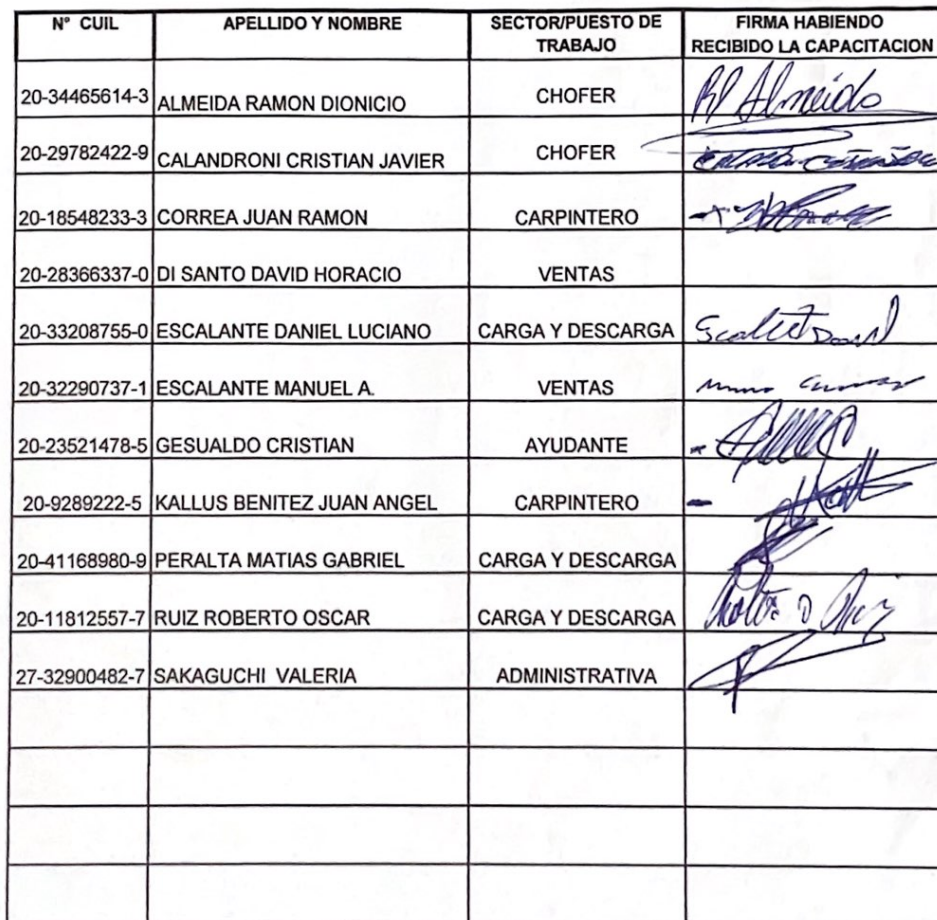 N° CUIL APELLIDO Y NOMBRE SECTOR/PUESTO DE TRABAJO FIRMA HABIENDO RECIBIDO LA CAPACITACION
20-34465614-3 ALMEIDA RAMON DIONICIO CHOFER RD Almeida
20-29782422-9 CALANDRONI CRISTIAN JAVIER CHOFER
20-18548233-3 CORREA JUAN RAMON CARPINTERO
20-28366337-0 DI SANTO DAVID HORACIO VENTAS
20-33208755-0 ESCALANTE DANIEL LUCIANO CARGA Y DESCARGA
20-32290737-1 ESCALANTE MANUEL A. VENTAS
20-23521478-5 GESUALDO CRISTIAN AYUDANTE
20-9289222-5 KALLUS BENITEZ JUAN ANGEL CARPINTERO
20-41168980-9 PERALTA MATIAS GABRIEL CARGA Y DESCARGA
20-11812557-7 RUIZ ROBERTO OSCAR CARGA Y DESCARGA
27-32900482-7 SAKAGUCHI VALERIA ADMINISTRATIVA